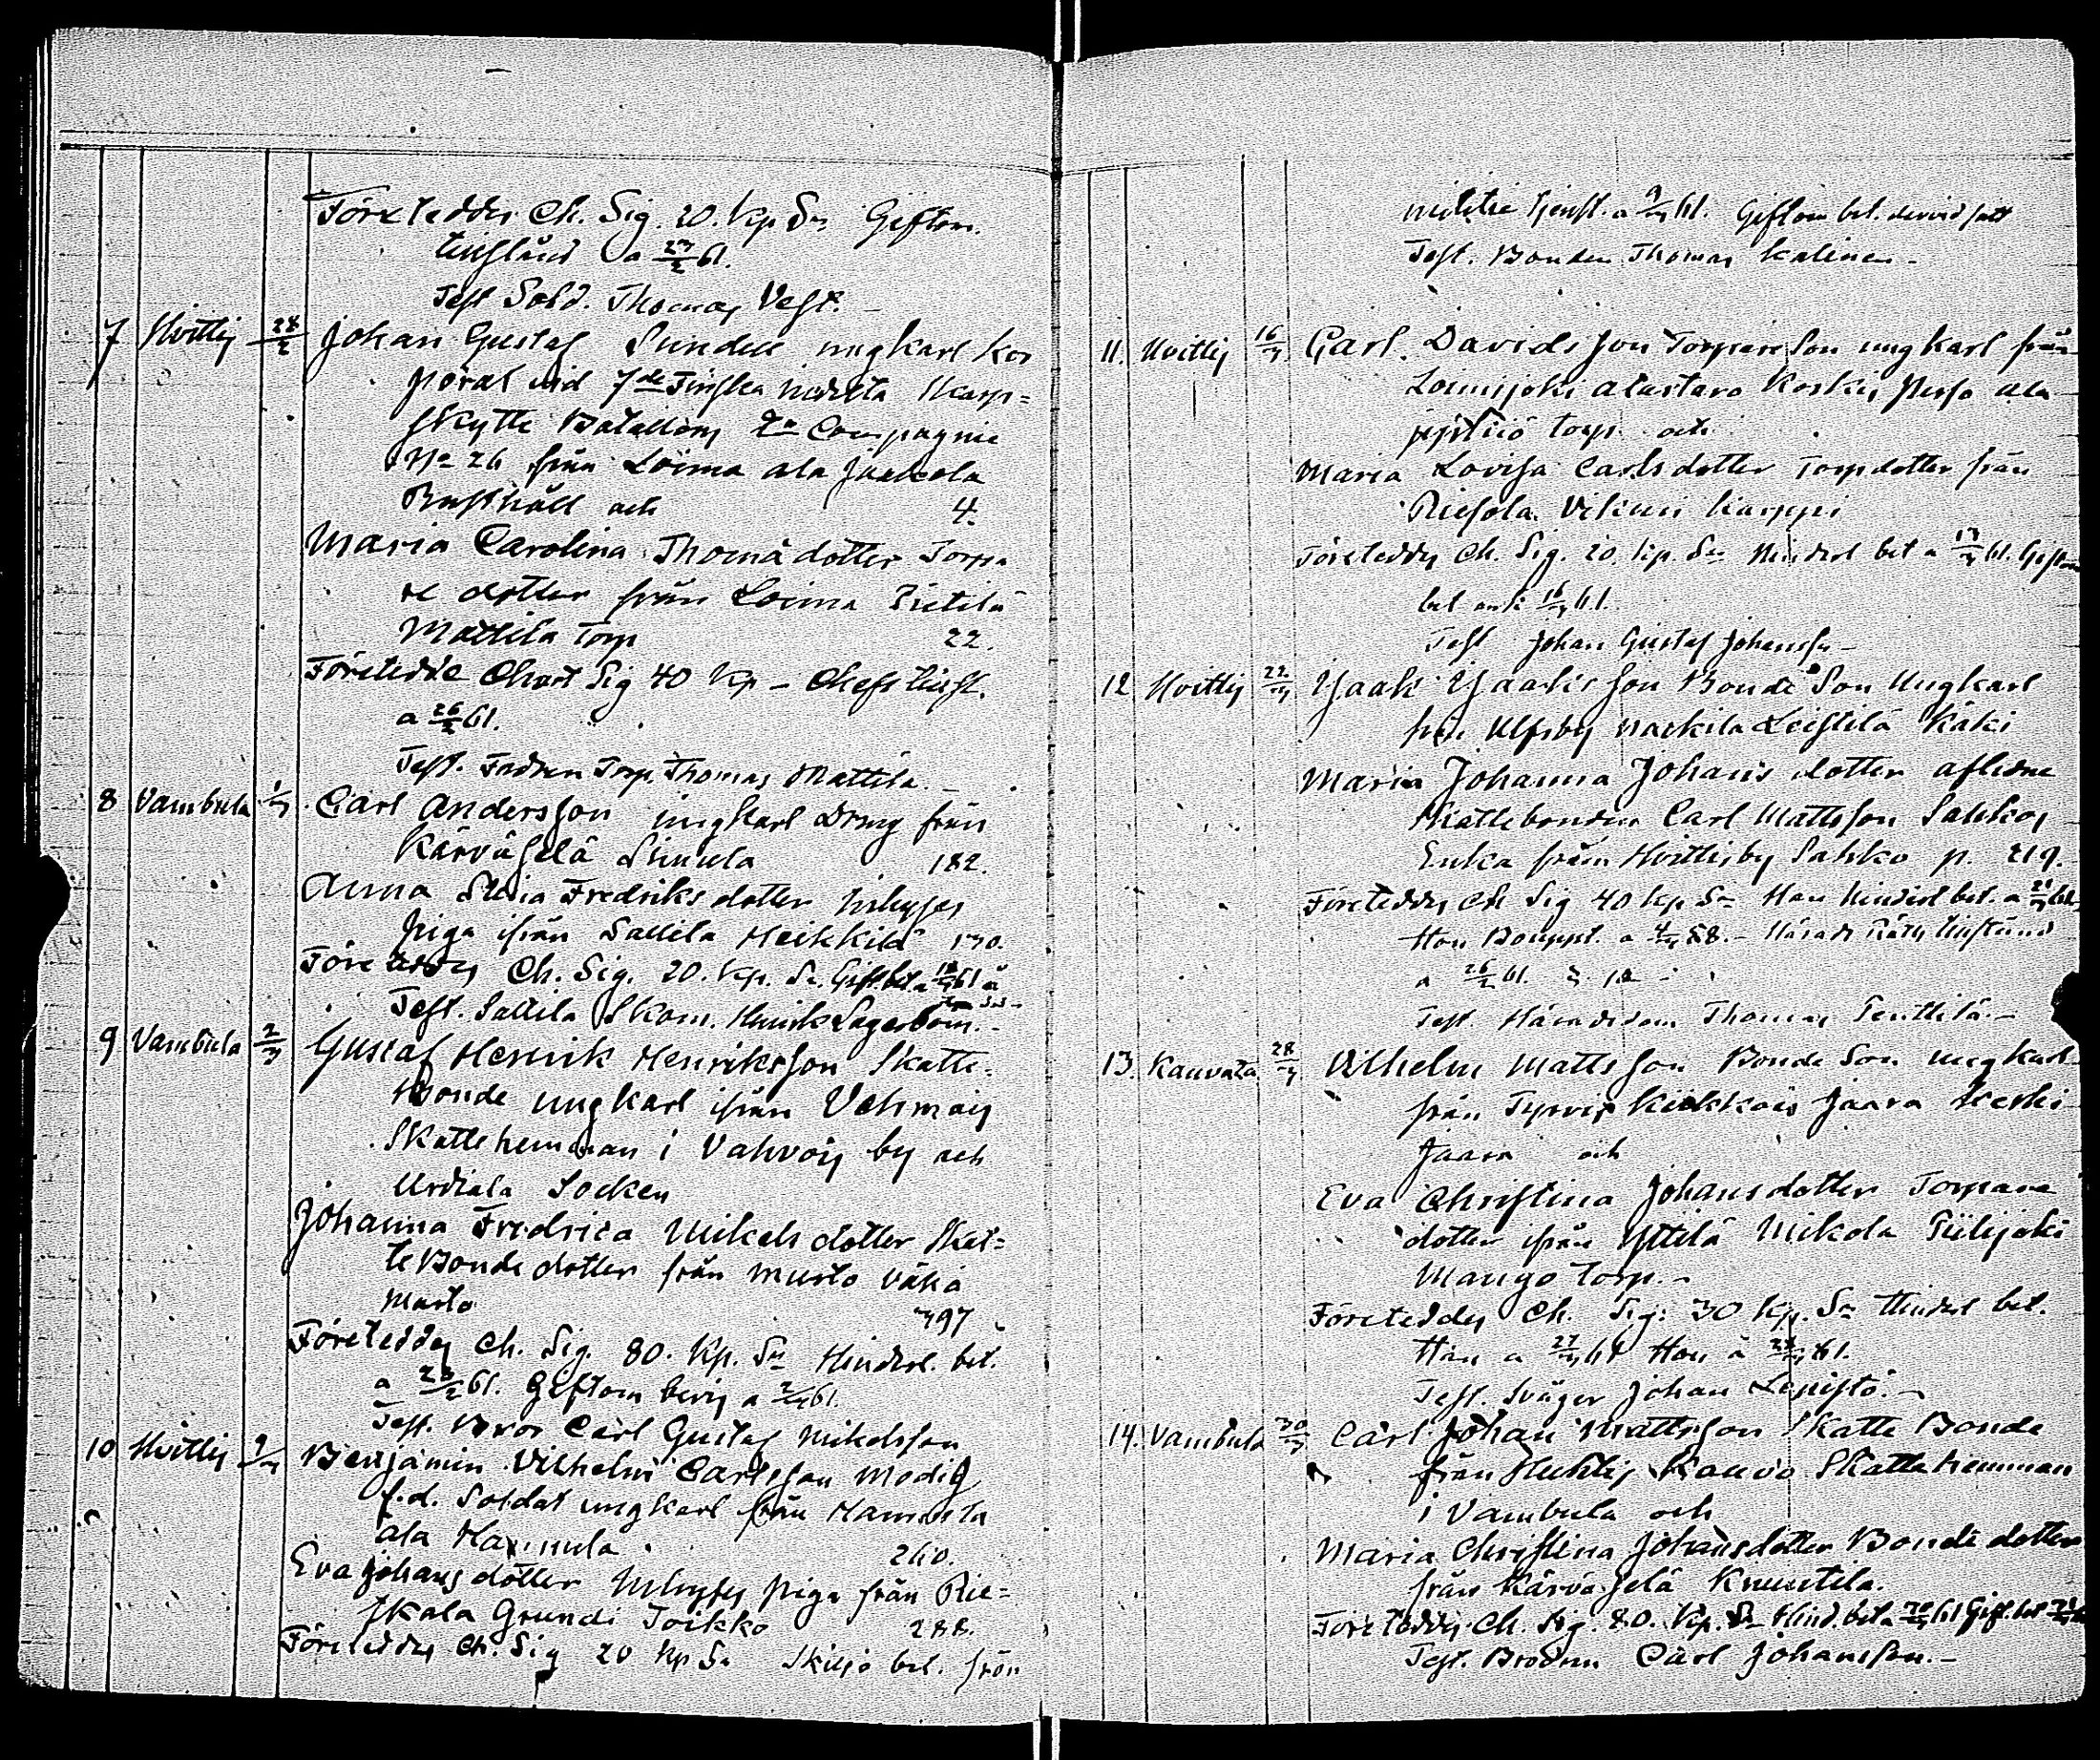 Företeddes Ch. Sig. 20. kp Sr Giftom.
tillstånd a 27/2 61.
Test Sold. Thomas Vest.
7 Hvittis 28/2 Johan Gustaf Sundell ungkarl Kor
poral vid 7de Finska indelta Skarp=
skytte Bataillons Compagnie
No 26 från Loima ala Jaakola
Rusthåll och 4.
Maria Carolina Thomädotter Torpa
re dotter från Loima Pietilä
Mattila Torp 22.
Företedde Chart Sig 40 kp – Chefs tillst.
a 26/2 61.
Test. Fadren Torp. Thomas Mattila.
8 Vambula 1/3 Carl Andersson ungkarl Dräng från
Kärväselä Simula 182.
Anna Stina Fredriksdotter Inhyses
piga ifrån Sallila Heikkilä 130.
Företeddes Ch. Sig. 20. kp. Sr. Gift. bet. a 61
Test. Sallila Skom. Henrik Lagerbom.
9 Vambula 2/3 Gustaf Henrik Henriksson Skatte-
Bonde ungkarl ifrån Vahmais
Skattehemman i Vahvois by och
Urdiala Socken
Johanna Fredrica Mikelsdotter Skat=
te Bonde dotter från Murto Vähä
Murto 397
Företeddes Ch. Sig. 80. kp. Sr Hindersl. bet.
a 23/2 61. Giftom bevis a 2/3 61.
Test. Bror Carl Gustaf Mikelsson
10 Hvittis 9/3 Benjamin Vilhelm Carlsson Modig
f.d. Soldat ungkarl från Hannula
ala Hannula 260.
Eva Johansdotter Inhyses piga från Rie=
skala Grundi Toikko 288.
Företeddes Ch. Sig 20 kp Sr Skiljo bet. från
militie tjenst. a 9/3 61. Giftom bet. dervid satt
Test. Bonden Thomas Kalinen –
11. Hvittis 16/3 Carl Davidsson Torpare Son ungkarl från
Loimijoki Alastaro Koskis Ala
Torp och
Maria Lovisa Carlsdotter Torpdotter från
Riesola Vikuri Karppi
Företeddes Ch. Sig. 20. kp. Sr Hindersl bet a 17/3 61. Giftom
bet 16/3 61.
Test Johan Gustaf Johansson –
12 Hvittis 22/3 Isaak Isaaksson Bonde Son Ungkarl
från Ulfsby Leistilä Käki
Maria Johanna Johans dotter aflidne
Skattebonden Carl Mattsson Sahkos
Enka från Hvittisby Sahko p. 219.
Företeddes Ch Sig 40 kp Sr Han Hindersl bet. a 21/3 61.
Hon Bouppt. a 58. – Härads Rätts tillstånd
a 26/2 61.
Test. Häradsdom Thomas Penttilä. –
13 Kauvatsa 28/3 Vilhelm Mattsson Bonde Son ungkarl
från Tyrvis Kiikkois Jaara Keski
Jaara och
Eva Christina Johansdotter Torpare
dotter ifrån Yttilä Mikola Piilijoki
Torp. –
Företeddes Ch. Sig: 30 kp. Sr Hindersl bet.
Han a 27/3 61 Hon a 61.
Test. Svåger Johan Lepistö. –
14. Vambula 30/3 Carl Johan Mattsson Skatte Bonde
från Huhtis Skattehemman
i Vambula och
Maria Christina Johansdotter Bonde dotter
från Kärväselä Knuutila.
Företeddes Ch. Sig. 80. kp. Sr Hind. bet. a 61 Gift. bet
Test. Brodren Carl Johansson. –